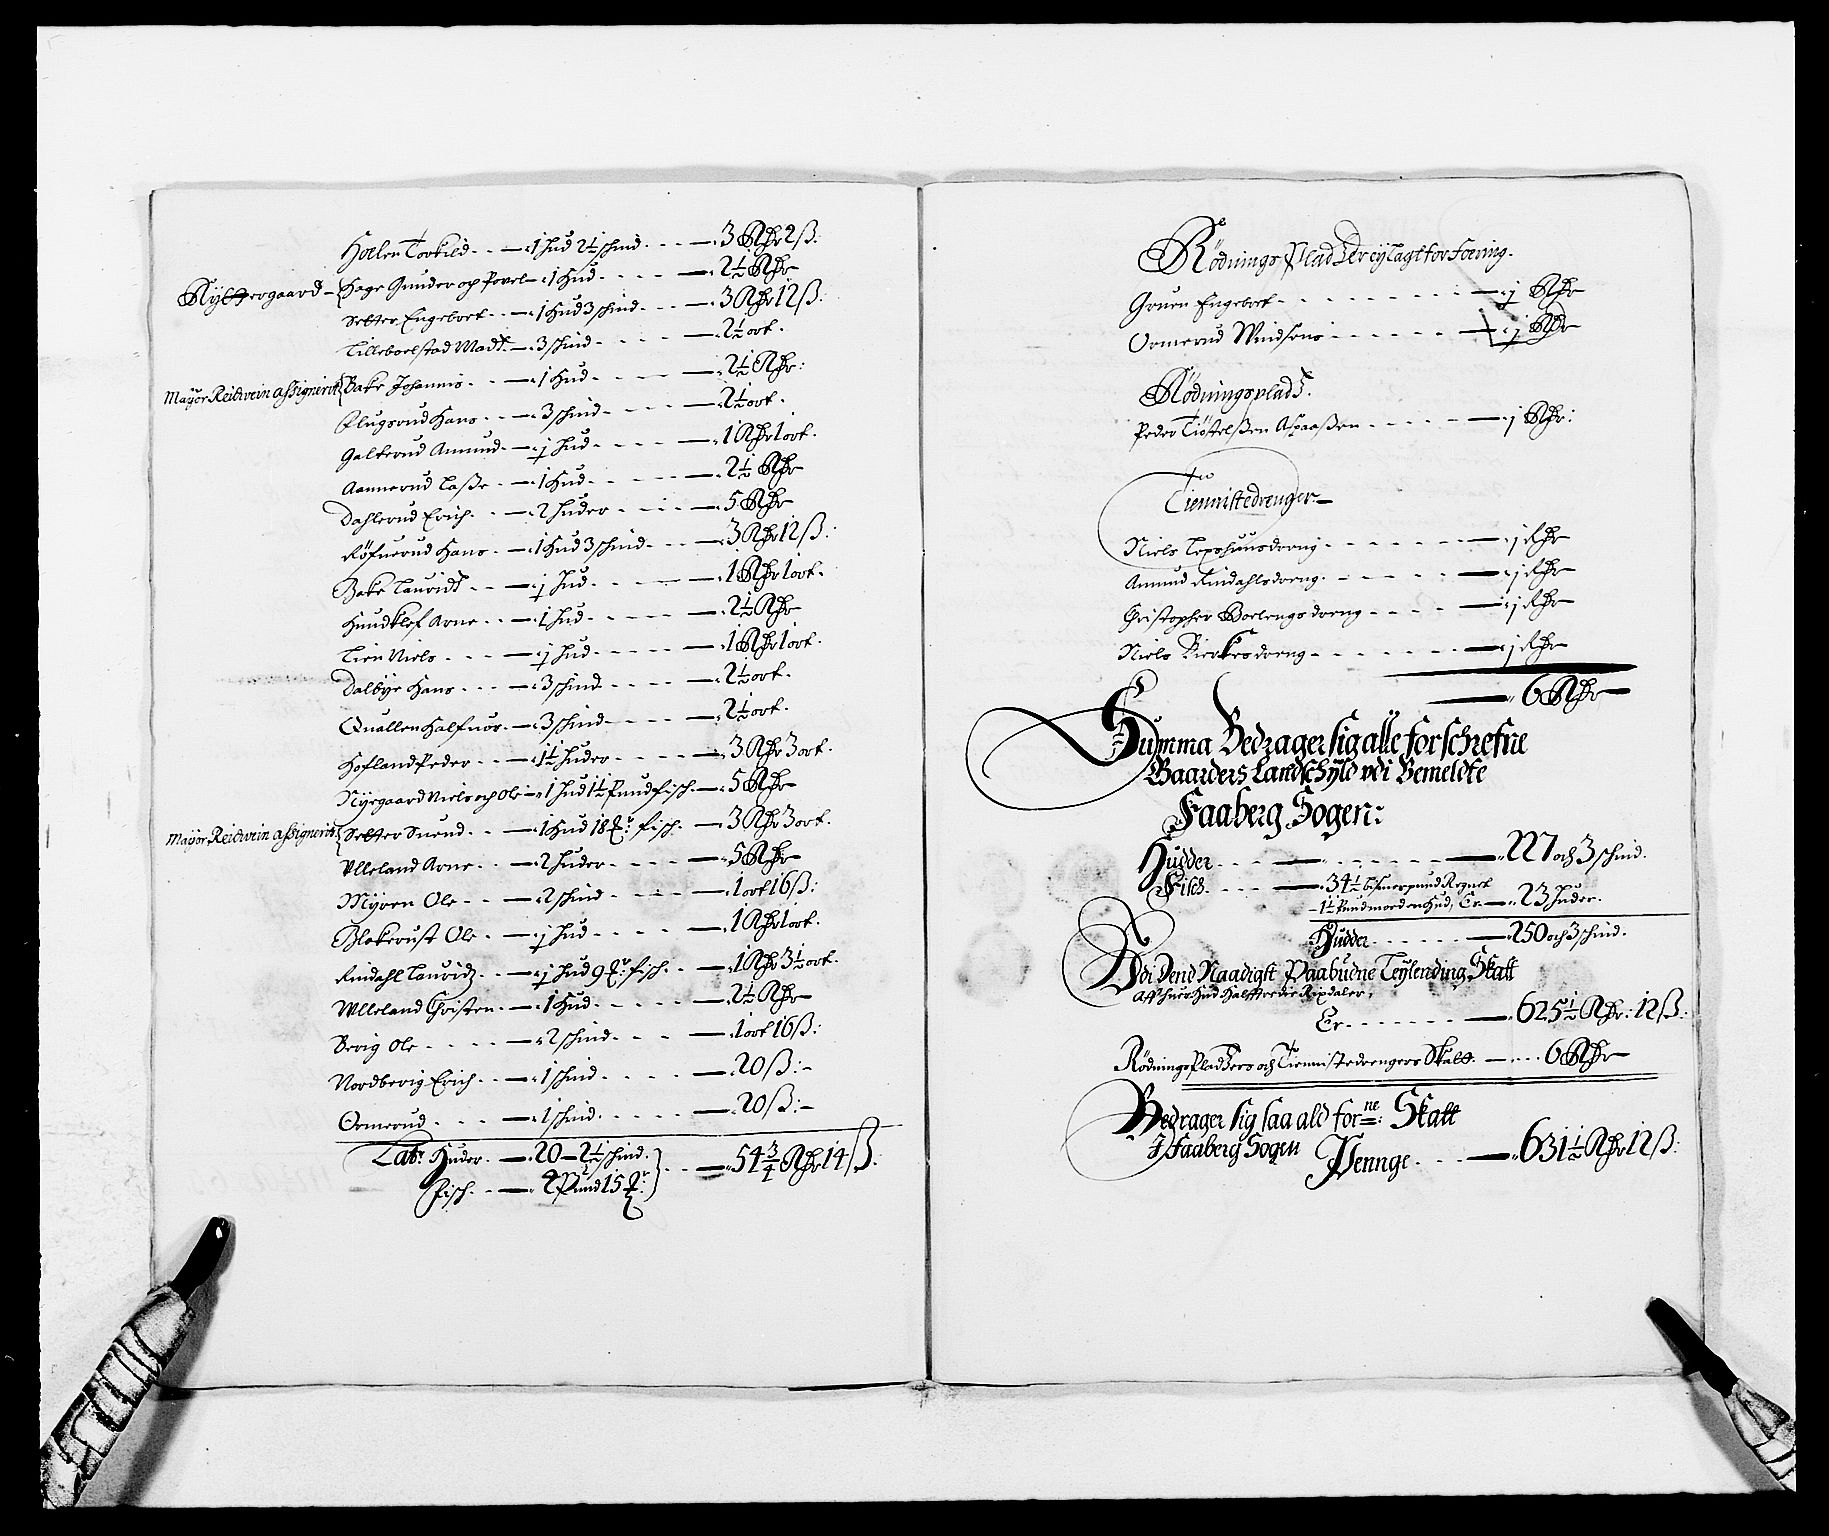 Holen Torkild - - 1 hud 2½ schind - - 3 Rdr 2 ß:
Ryttergaard - Hage Gunder og Povel - 1 Hud - - 2½ Rdr
Setter Engebret - - 1 Hud 3 schind - - 3 Rdr 12 ß:
Lilleboelstad Madtz - 3 schind - - 2½ ort.
Mayor Reidwein assignerit Bake Johannis - - 1 Hud - - 2½ Rdr:
Flugsrud Hans - - 3 schind - - 2½ ort.
Galterud Amund - ½ Hud - - 1 Rdr 1 ort.
Aannerud Lasse - - 1 Hud - - 2½ Rdr
Dahlerud Erich - - 2 huder - - 5 Rdr
Røfnerud Hans - 1 Hud 3 schind - - 3 Rdr 12 ß:
Bake Lauridtz - - ½ hud - - 1 Rdr 1 ort.
Hundklef Arne - - 1 hud - - 2½ Rdr
Lien Niels - - ½ hud - - 1 Rdr 1 ort.
Dalbye Hans - - 3 schind - - 2½ ort.
Quallen Halfuor - 3 schind - - 2½ ort.
Hofland Peder - - 1½ huder - - 3 Rdr 3 ort.
Nyegaard Niels och Ole - 1 hud 1½ Pund fisch - 5 Rdr
Mayor Reidwein assignerit Setter Suend - - 1 Hud 18 fisch - 3 Rdr 3 ort.
Ulleland Arne - - 2 huder - - 5 Rdr
Myren Ole - - 2 schind - - 1 ort 16 ß:
Blokerust Ole - ½ hud - - 1 Rdr 1 ort.
Rindahl Lauridz - ½ hud 9 fisch - 1 Rdr 3½ ort.
Ulleland Christen - 1 Hud - - 2½ Rdr
Berig Ole - - 2 schind - - 1 ort 16 ß:
Nordberig Erich - - 1 schind - - 20 ß:
Ormerud - - 1 schind - - 20 ß:
Lat: Huder - 20 - 2½ schind - - 54¾ Rdr 14 ß.
Fisch - - 2 Pund 15
Rødnings Pladtzer eylagt for Foering.
Gruen Engebret - - j Rdr
Ormerud - - j Rdr
Rødningspladtz.
Peder - - j Rdr:
Tiennistedrenger
Niels - - j Rdr
Amund Rindahlsdreng - - j Rdr
Christopher Boelengs dreng - - j Rdr
Niels - - j Rdr
6 Rdr
Summa Bedrager sig alle forschrefne
Gaarders Landschyld udi Bemeldte
Faaberg Sogen:
Hudder - - 227 och 3 schind.
Fisch - - 34½ bismerpund Regnet
1½ Pund mod en Hud, Er - 23 Huder.
Hudder - - 250 och 3 schind.
Udi Dend Naadigst Paabudne Leylending Skatt
Aff huer Hud Halfftredie Rixdaler,
Er - - 625½ Rdr: 12 ß:
Rødnings Pladtzers och Tiennistedrengers Skatt - 6 Rdr
Bedrager sig saa ald forne: Skatt
J Faaberg Sogen Pennge - - 631½ Rdr 12 ß: